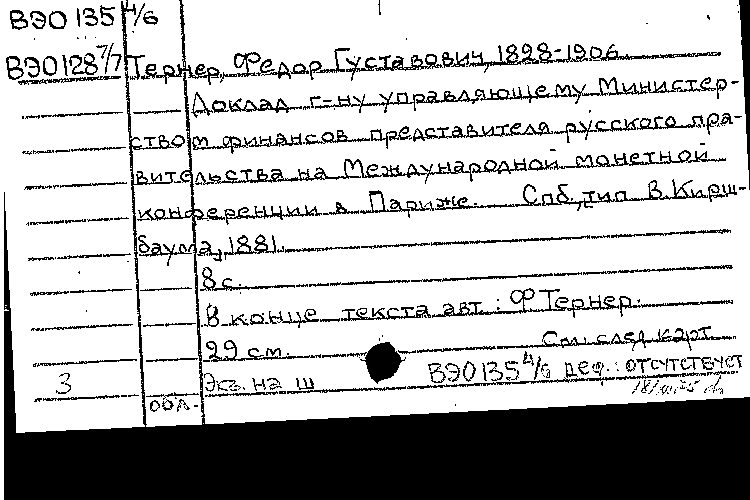 ВЭО 135 4/6
ВЭО128 7/7 Тернер, Федор Густавович, 1828-1906.
Доклад г=ну управляющему Министер-
ством финансов представителя русского пра-
вительства на Международной монетной
конференции в Париже. Спб, тип В. Кирш-
баума, 1881.
8 с.
В конце текста авт.: Ф Тернер.
29 см. См. след карт.
3 Экз. на ш ВЭО135 4/6 деф.: отсутствует
обл.